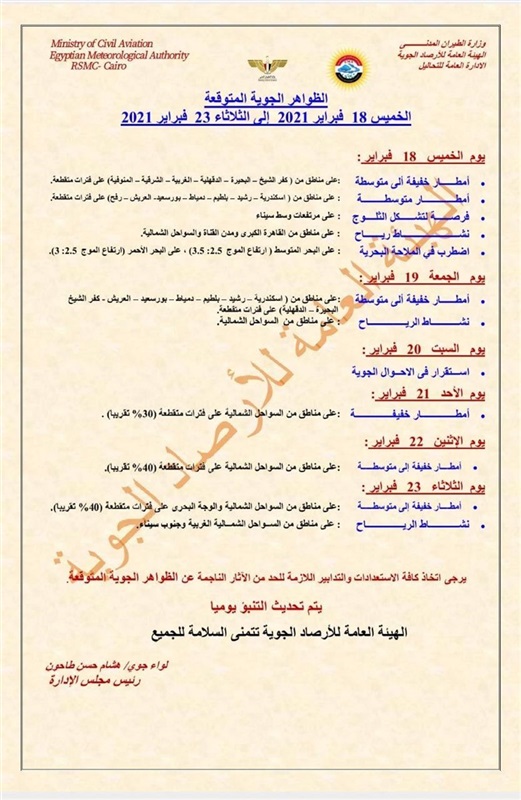 Ministry of Civil Aviation
Egyptian Meteorological Authority
RSMC- Cairo
وزارة الطيران المدنـــــــى
الهيئة العامة للأرصاد الجوية
الادارة العامة للتحاليل
الظواهر الجوية المتوقعة
الخميس 18 فبراير 2021 إلى الثلاثاء 23 فبراير 2021
يوم الخميس 18 فبراير :
• أمطــار خفيفة ألى متوسطة :على مناطق من ( كفر الشيخ – البحيرة – الدقهلية – الغربية – الشرقية – المنوفية) على فترات متقطعة.
• أمطـــــار متوسطـــــة :على مناطق من ( اسكندرية – رشيد – بلطيم – دمياط – بورسعيد- العريش – رفح) على فترات متقطعة.
• فرصـة لتشـكل الثلـــوج : على مرتفعات وسط سيناء
• نشــــاط ريـــاح : على مناطق من القاهرة الكبرى ومدن القناة والسواحل الشمالية.
• اضطرب في الملاحة البحرية : على البحر المتوسط ( ارتفاع الموج 2.5: 3.5) ، على البحر الأحمر (ارتفاع الموج 2.5: 3).
يوم الجمعة 19 فبراير :
• أمطــار خفيفة ألى متوسطة :على مناطق من ( اسكندرية – رشيد – بلطيم – دمياط – بورسعيد – العريش - كفر الشيخ
البحيرة – الدقهلية) على فترات متقطعة.
• نشـــاط الريـــاح : على مناطق من السواحل الشمالية.
يوم السبت 20 فبراير :
• اســـتقرار فى الاحـوال الجوية
يوم الأحد 21 فبراير :
• أمطــــار خفيفــــــة :على مناطق من السواحل الشمالية على فترات متقطعة (30% تقريبا) .
يوم الاثنين 22 فبراير :
• أمطــار خفيفة إلى متوسطــة :على مناطق من السواحل الشمالية على فترات متقطعة (40% تقريبا).
يوم الثلاثاء 23 فبراير :
• أمطــار خفيفة إلى متوسطــة :على مناطق من السواحل الشمالية والوجة البحرى على فترات متقطعة (40% تقريبا).
• نشـــاط الريـــاح : على مناطق من الســواحل الشمــالية الغربية وجنوب سيناء.
يرجى اتخاذ كافة الاستعدادات والتدابير اللازمة للحد من الآثار الناجمة عن الظواهر الجوية المتوقعة.
يتم تحديث التنبؤ يوميا
الهيئة العامة للأرصاد الجوية تتمنى السلامة للجميع
لواء جوي/ هشام حسن طاحون
رئيس مجلس الإدارة
الهيئة العامة للأرصاد الجوية